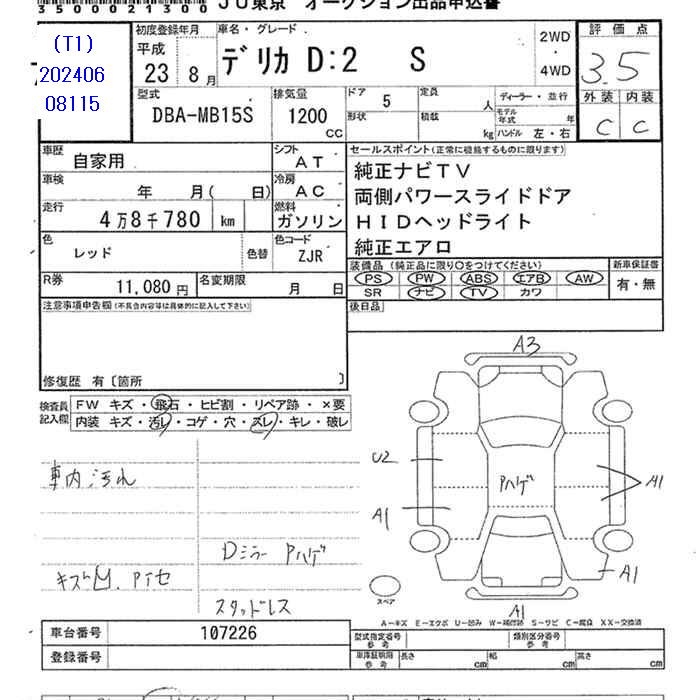 3 5 0 0 0 2 1 3 0 0 ＪＵ東京 オークション出品申込書
(T1)
202406
08115
初度登録年月
平成
23 8 月
車名・グレード
デリカ D:2 S
2WD
・
4WD
評 価 点
3.5
外 装 内 装
C C
型式
DBA-MB15S
排気量
1200
CC
ドア 5
形状
定員 人
積載 kg
ディーラー・並行
モデル年式 年
ハンドル 左・右
車歴
自家用
シフト
ＡＴ
車検
年 月 ( 日)
冷房
ＡＣ
走行
4万8千780 km
燃料
ガソリン
色
レッド
色替
色コード
ZJR
R券
11,080 円
名変期限
月 日
セールスポイント(正常に機能するものに限ります)
純正ナビＴＶ
両側パワースライドドア
ＨＩＤヘッドライト
純正エアロ
装備品 (純正品に限り○をつけてください)
PS PW ABS エアB AW
SR ナビ TV カワ
新車保証書
有・無
後日品
注意事項申告欄(不具合内容等は具体的に記入して下さい)
修復歴 有〔箇所 〕
検査員
記入欄
FW キズ・飛石・ヒビ割・リペア跡・×要
内装 キズ・汚レ・コゲ・穴・スレ・キレ・破レ
車内汚れ
Dミラー Pハゲ
キズ凹. Pアセ
スタッドレス
A3
U2
A1
Pハゲ
A1
A1
A1
スペア
A－キズ E－エクボ U－凹み W－補修跡 S－サビ C－腐食 XX－交換済
車台番号 107226
登録番号
型式指定番号
参 考
類別区分番号
参 考
車庫証明用
参 考
長さ cm
幅 cm
高さ cm